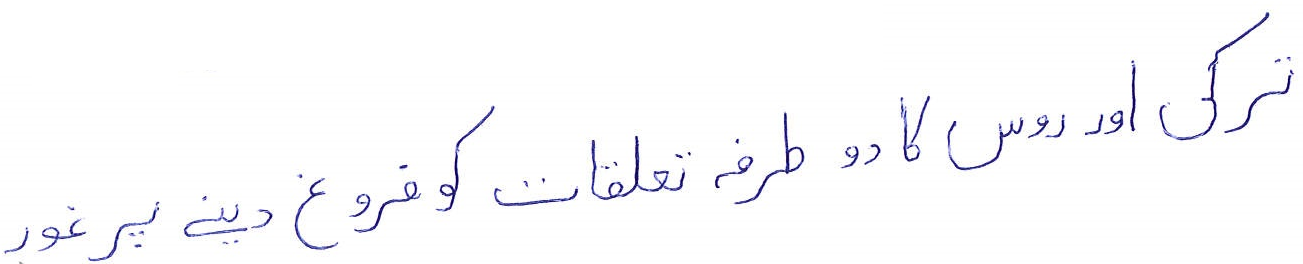 ترکی اور روس کا دو طرفہ تعلقات کو فروغ دینے پر غور